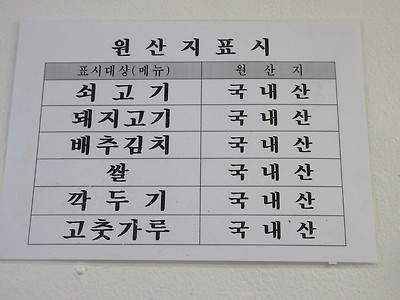 원산지표시
표시대상(메뉴) 원산지
쇠고기 국내산
돼지고기 국내산
배추김치 국내산
쌀 국내산
깍두기 국내산
고춧가루 국내산